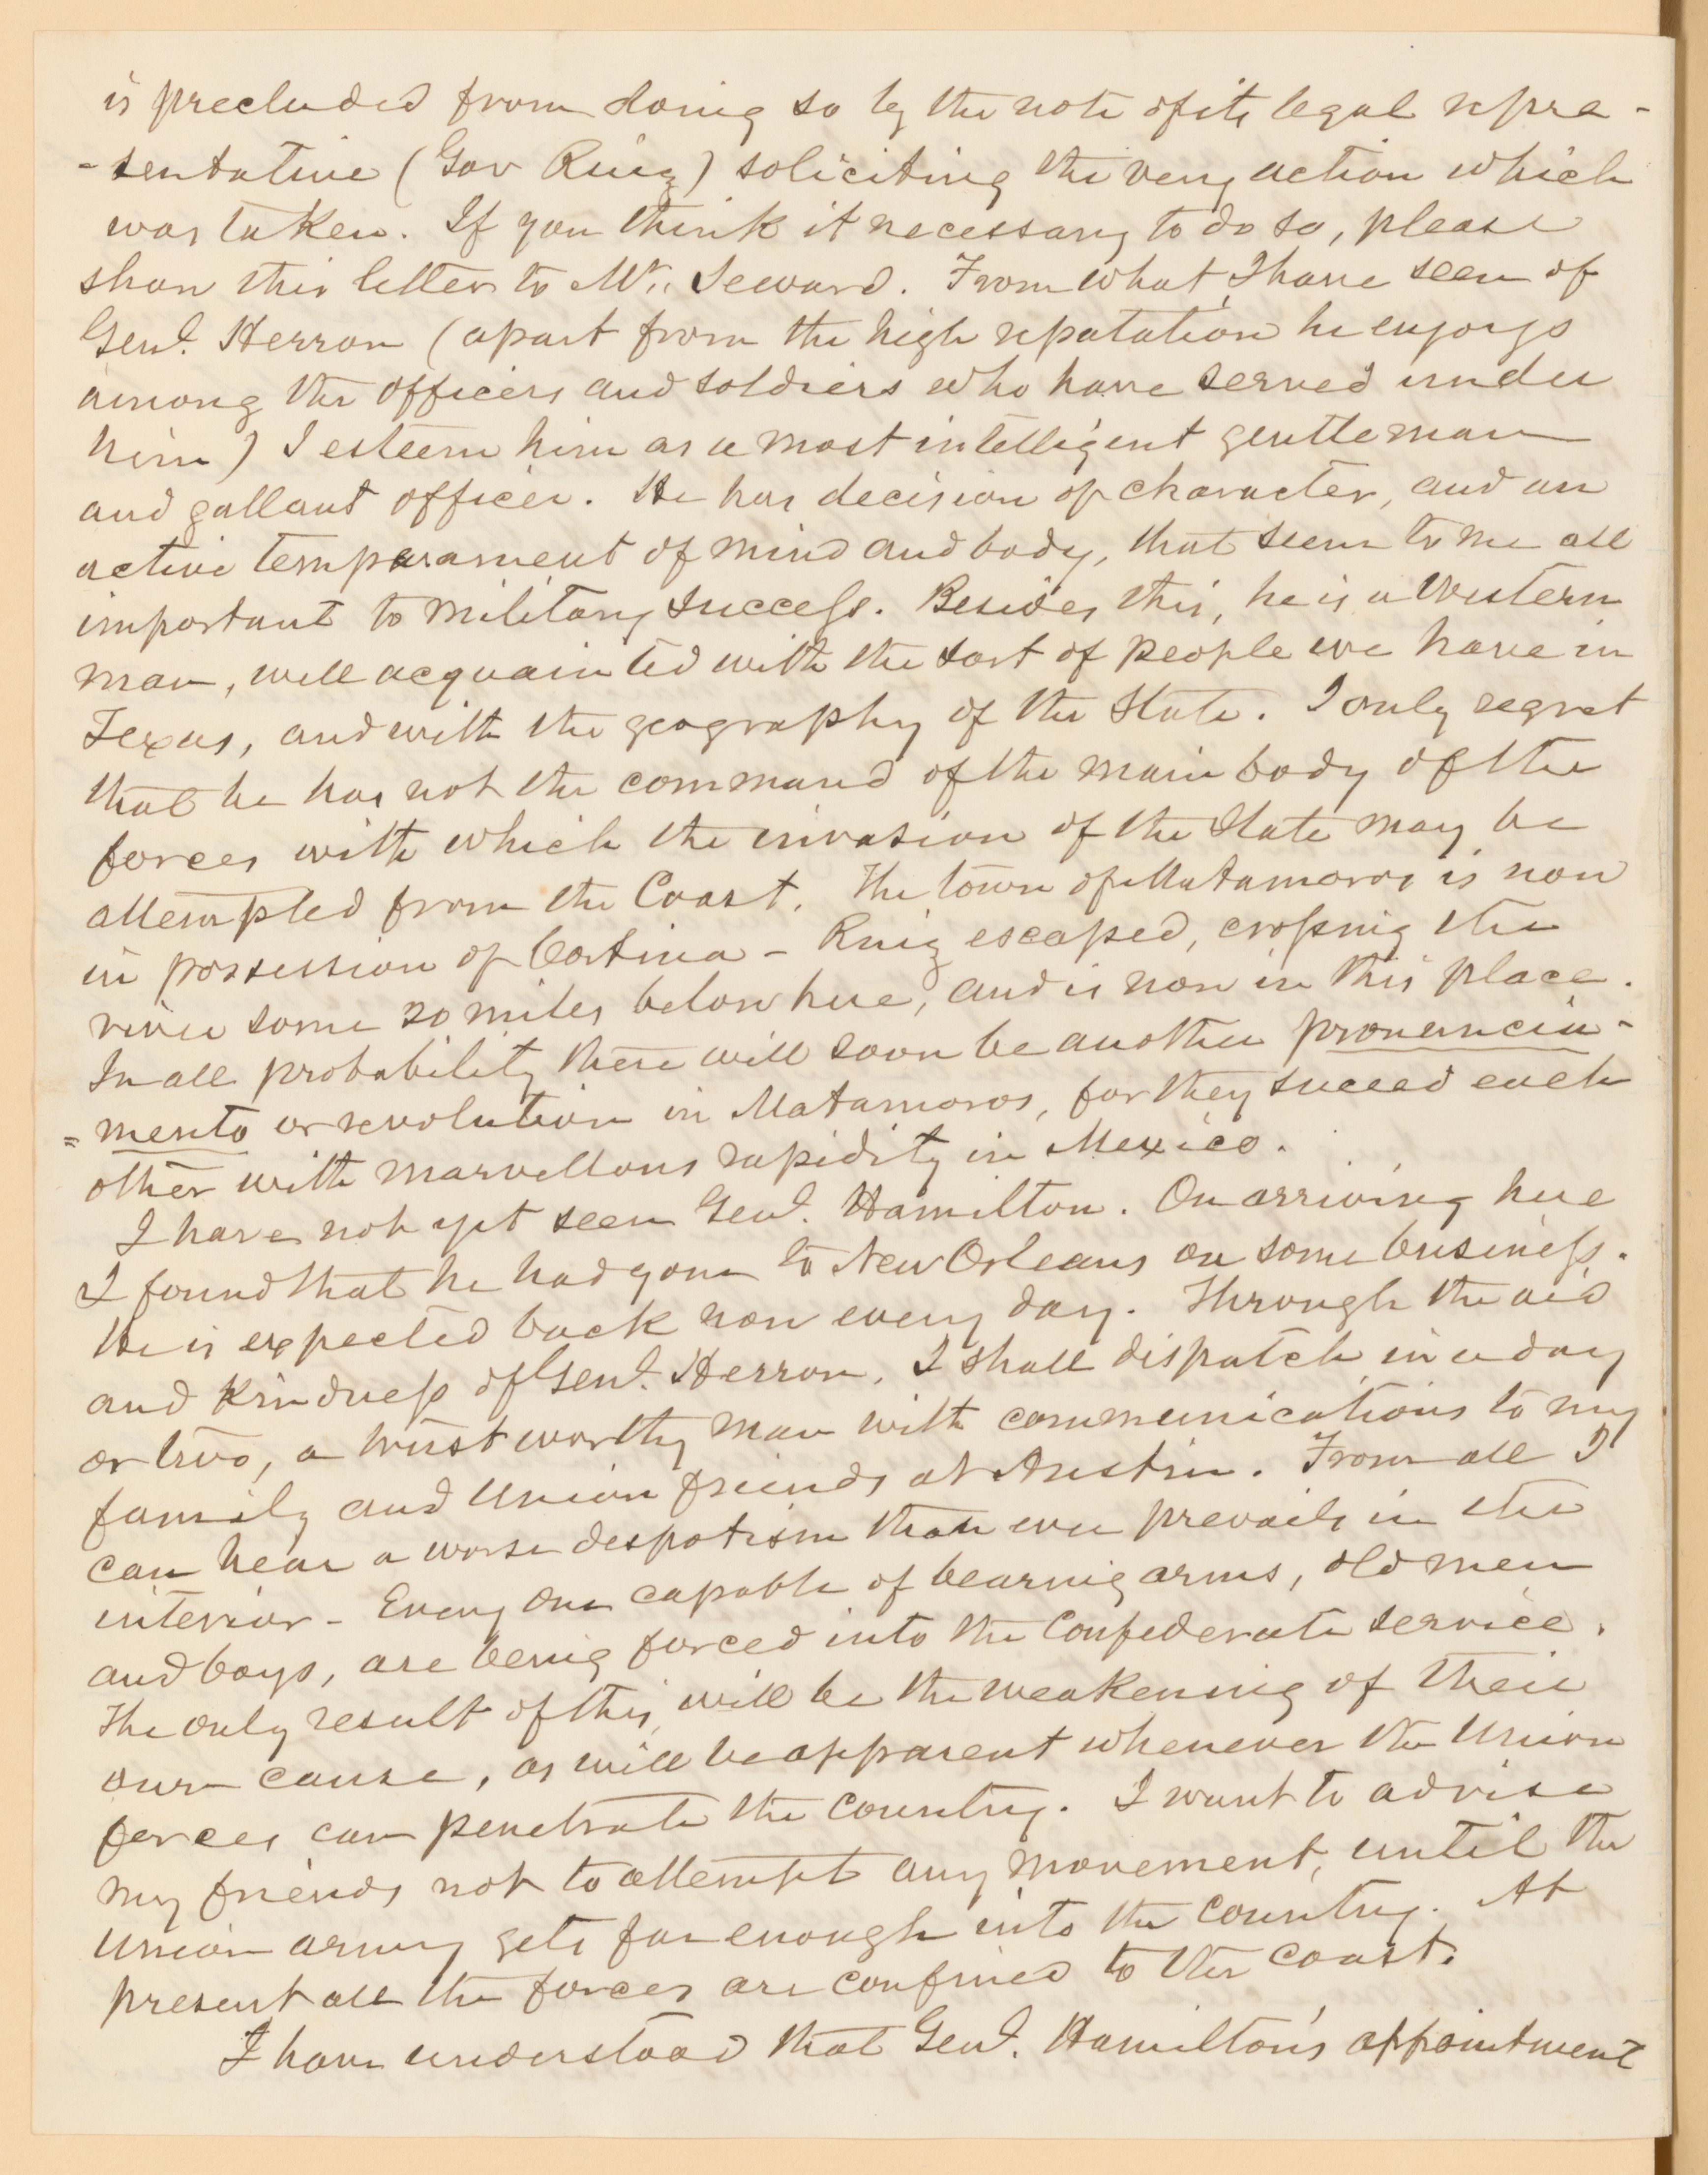 is precluded from doing so by the note of its legal repre-
-sentative (Gov Ruiz) soliciting the very action which
was taken. If you think it necessary to do so, please
show this letter to Mr. Seward. From what I have seen of
Genl. Herron (apart from the high reputation he enjoys
among the officers and soldiers who have served under
him) I esteem him as a most intelligent gentleman
and gallant officer. He has decision of character, and an
active temperament of mind and body, that seem to me all
important to military success. Besides this, he is a Western
man, well acquainted with the sort of people we have in
Texas, and with the geography of the State. I only regret
that he has not the command of the main body of the
forces with which the invasion of the State may be
attempted from the Coast. The town of Matamoros is now
in possession of Cortina - Ruiz escaped, crossing the
river some 20 miles below here, and is now in this place.
In all probability there will soon be another pronuncia-
=mento or revolution in Matamoros, for they succeed each
other with marvellous rapidity in Mexico.
I have not yet seen Genl. Hamilton. On arriving here
I found that he had gone to New Orleans on some business.
He is expected back now every day. Through the aid
and kindness of Genl. Herron, I shall dispatch in a day
or two, a trustworthy man with communications to my
family and Union friends at Austin. From all I
can hear a worse despotism than ever prevails in the
interior - Every one capable of bearing arms, old men
and boys, are being forced into the Confederate service.
The only result of this will be the weakening of their
own cause, as will be apparent whenever the Union
forces can penetrate the Country. I want to advise
my friends not to attempt any movement, until the
Union army gets far enough into the Country. At
present all the forces are confined to the coast.
I have understood that Genl. Hamilton's appointment